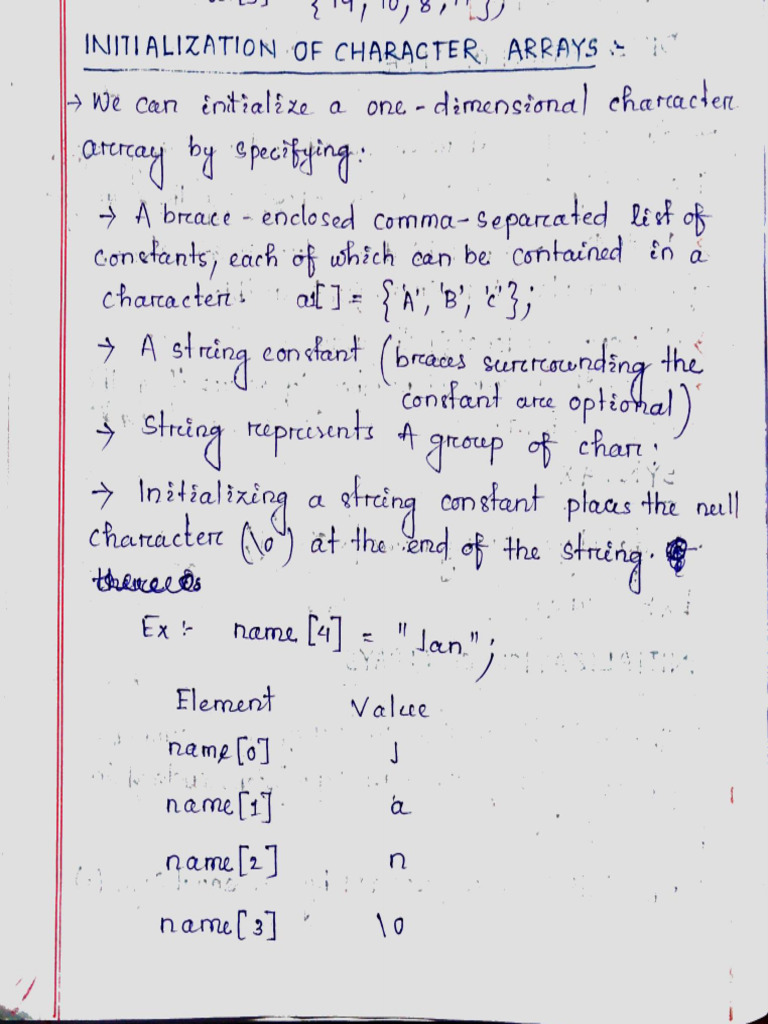 { 14, 10, 8, 11 };
INITIALIZATION OF CHARACTER ARRAYS :-
→ We can initialize a one-dimensional character
array by specifying.
→ A brace-enclosed comma-separated list of
constants, each of which can be contained in a
character. a1[] = {'A', 'B', 'c'};
→ A string constant (braces surrounding the
constant are optional)
→ String represents A group of char.
→ Initializing a string constant places the null
character (\0) at the end of the string.
Ex :- name [4] = "Jan";
Element Value
name[0] J
name[1] a
name[2] n
name[3] \0